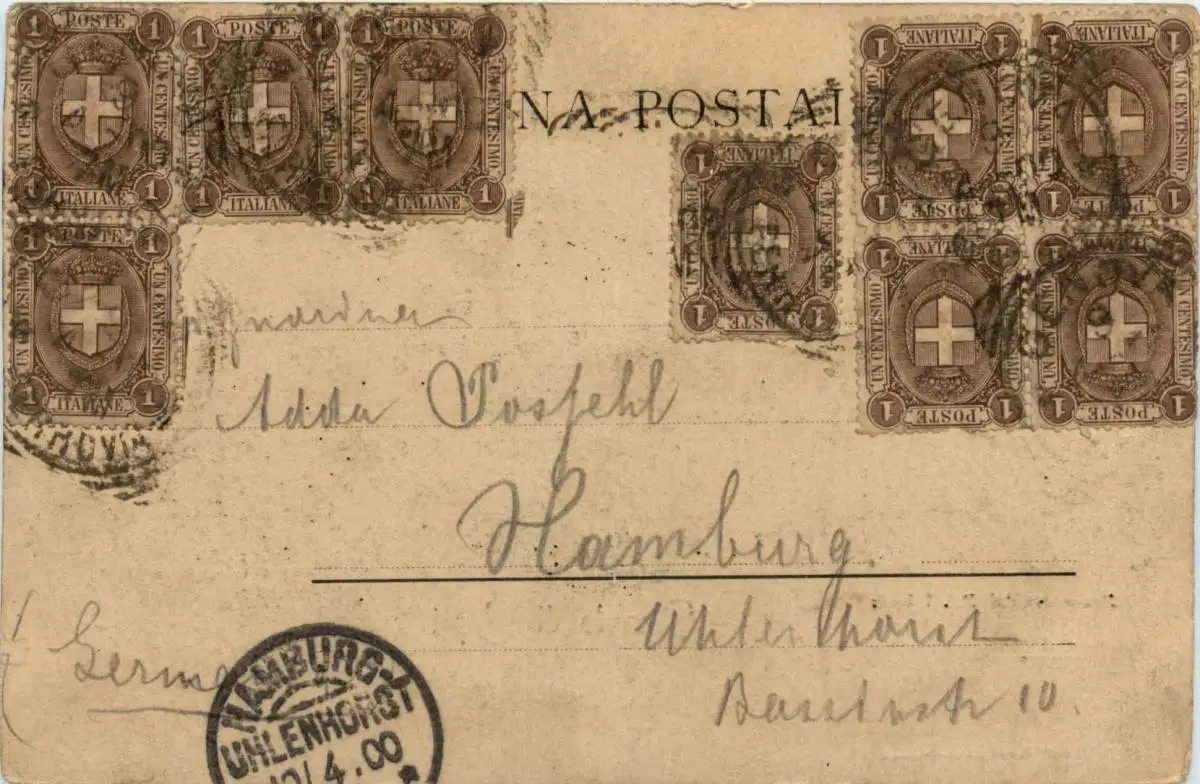 POSTE POSTE POSTE
1 1 1 1 1 1
UN CENTESIMO UN CENTESIMO UN CENTESIMO
1 1 1 1 1
ITALIANE ITALIANE ITALIANE
POSTE
1 1
UN CENTESIMO UN CENTESIMO
1 1
ITALIANE
NA POSTAL
ITALIANE ITALIANE
1 1 1 1
UN CENTESIMO UN CENTESIMO UN CENTESIMO
1 1 1 1
POSTE POSTE
ITALIANE
1 1
UN CENTESIMO
1 1
POSTE
ITALIANE ITALIANE
UN CENTESIMO UN CENTESIMO UN CENTESIMO
1 1 1 1
POSTE POSTE
Adda Possehl
Hamburg.
Uhlenhorst
10.
HAMBURG
UHLENHORST
4.00